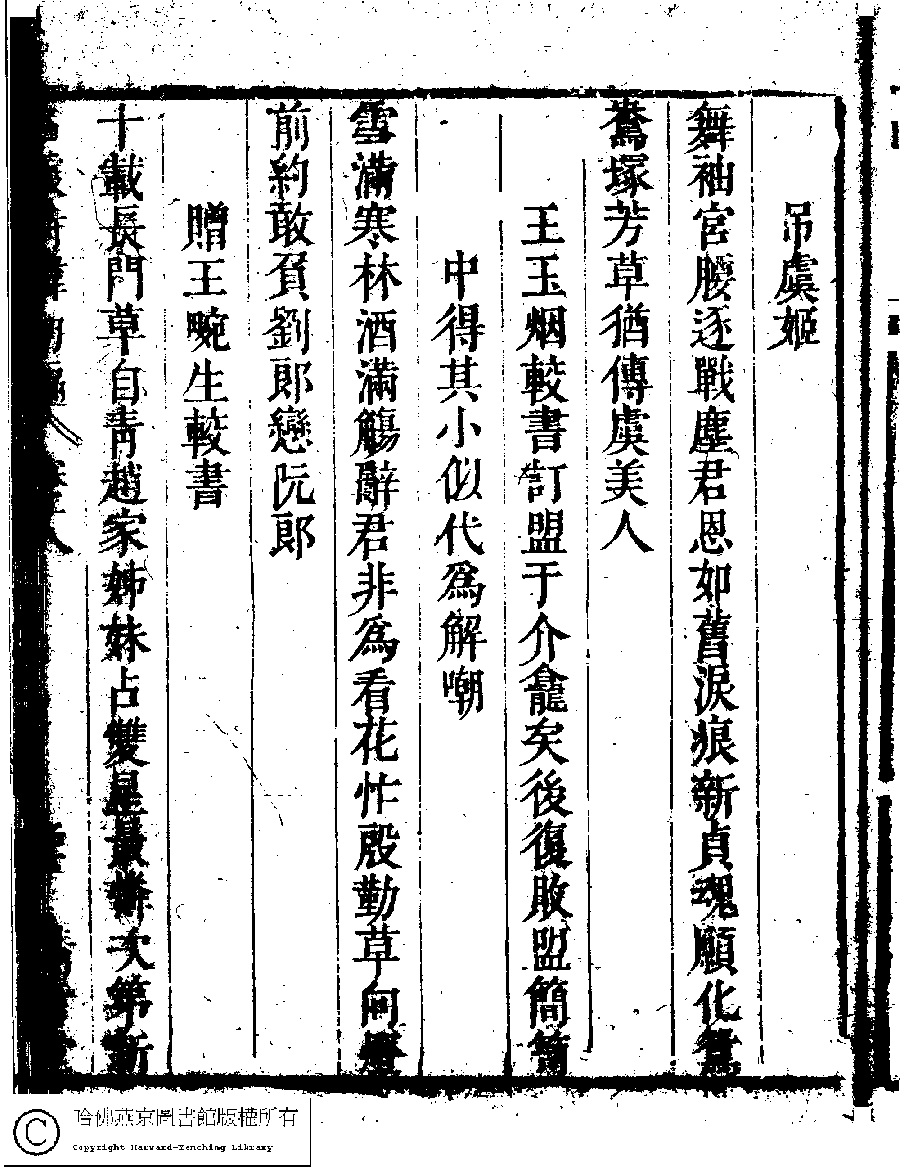 吊虞姬
舞袖宮腰逐戰塵君恩如舊淚痕新貞魂願化鴛
鴦塚芳草猶傳虞美人
王玉烟較書訂盟于介龕矣後復敗盟簡篇
中得其小似代為解嘲
雪滿寒林酒滿觴辭君非為看花忙殷勤草向燈
前約敢負劉郎戀阮郎
贈王畹生較書
十載長門草自青趙家姊妹占雙星最憐次第新
哈佛燕京圖書館版權所有
Copyright Harvard-Yenching Library